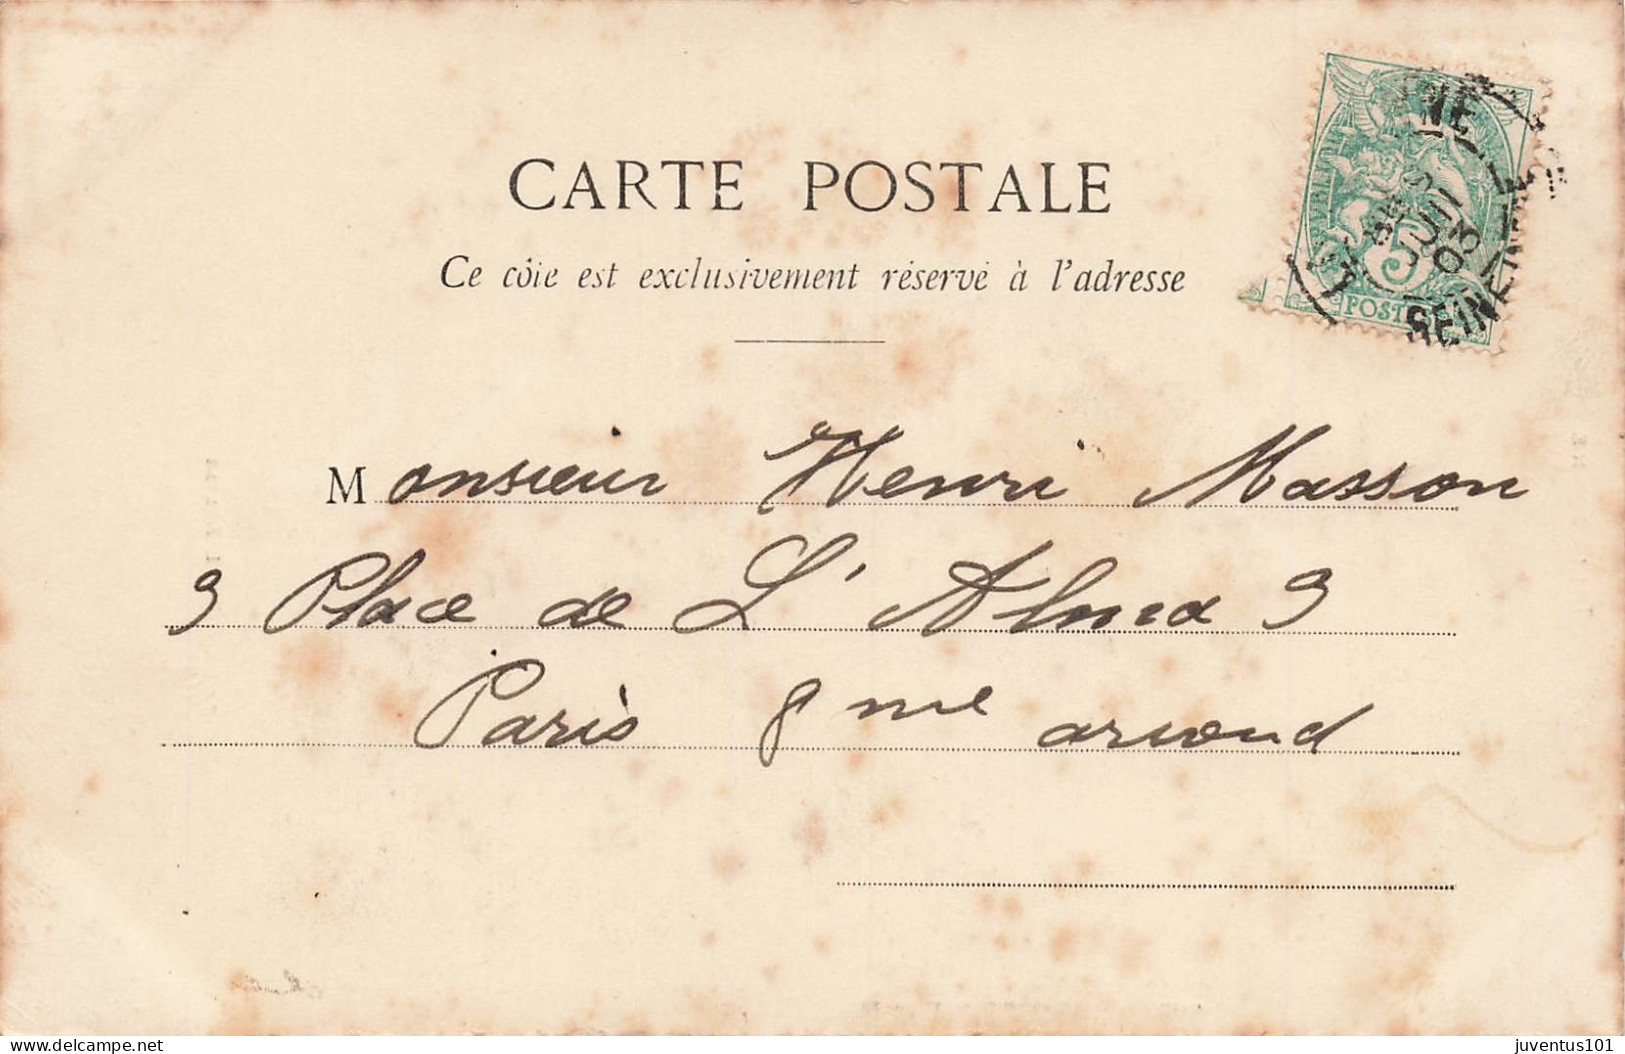 CARTE POSTALE
Ce côté est exclusivement réservé à l'adresse
5
POST
JUIL
03
SEINE
Monsieur Henri Masson
3 Place de L'Alma 3
Paris 8me arrond
delcampe.net
juventus101